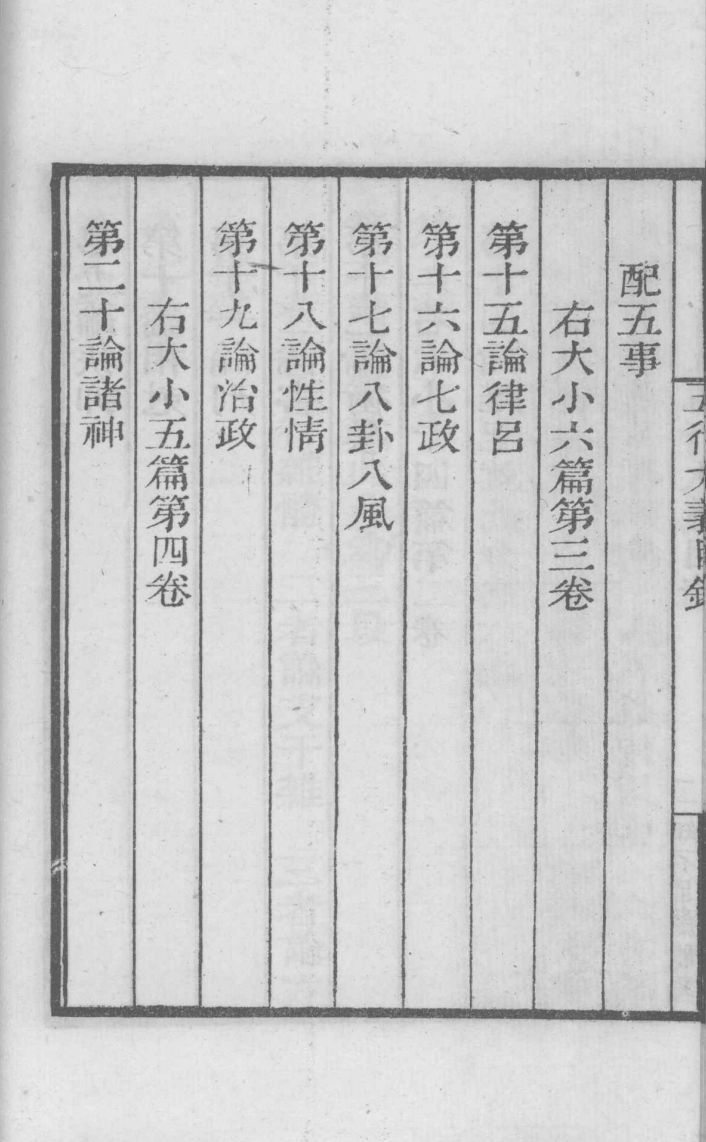 五行大義目錄
配五事
右大小六篇第三卷
第十五論律呂
第十六論七政
第十七論八卦八風
第十八論性情
第十九論治政
右大小五篇第四卷
第二十論諸神